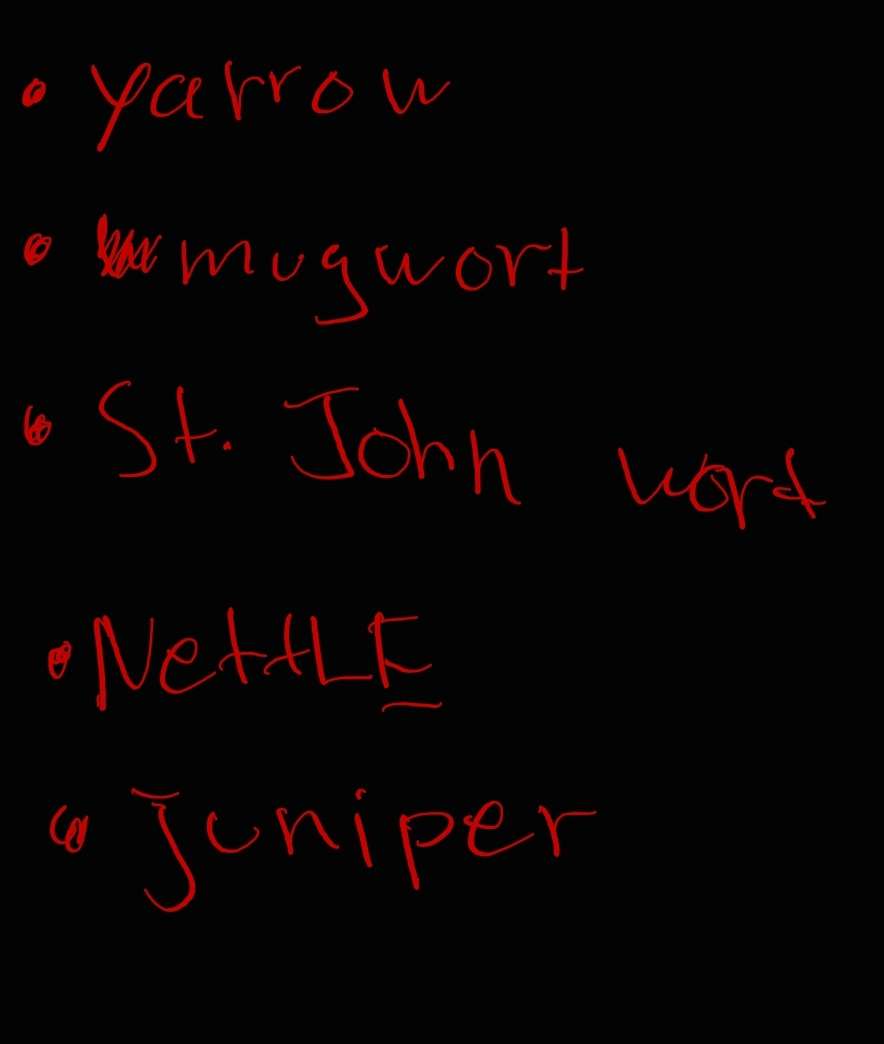 • Yarrow
• mugwort
• St. John wort
• NettLE
• Juniper